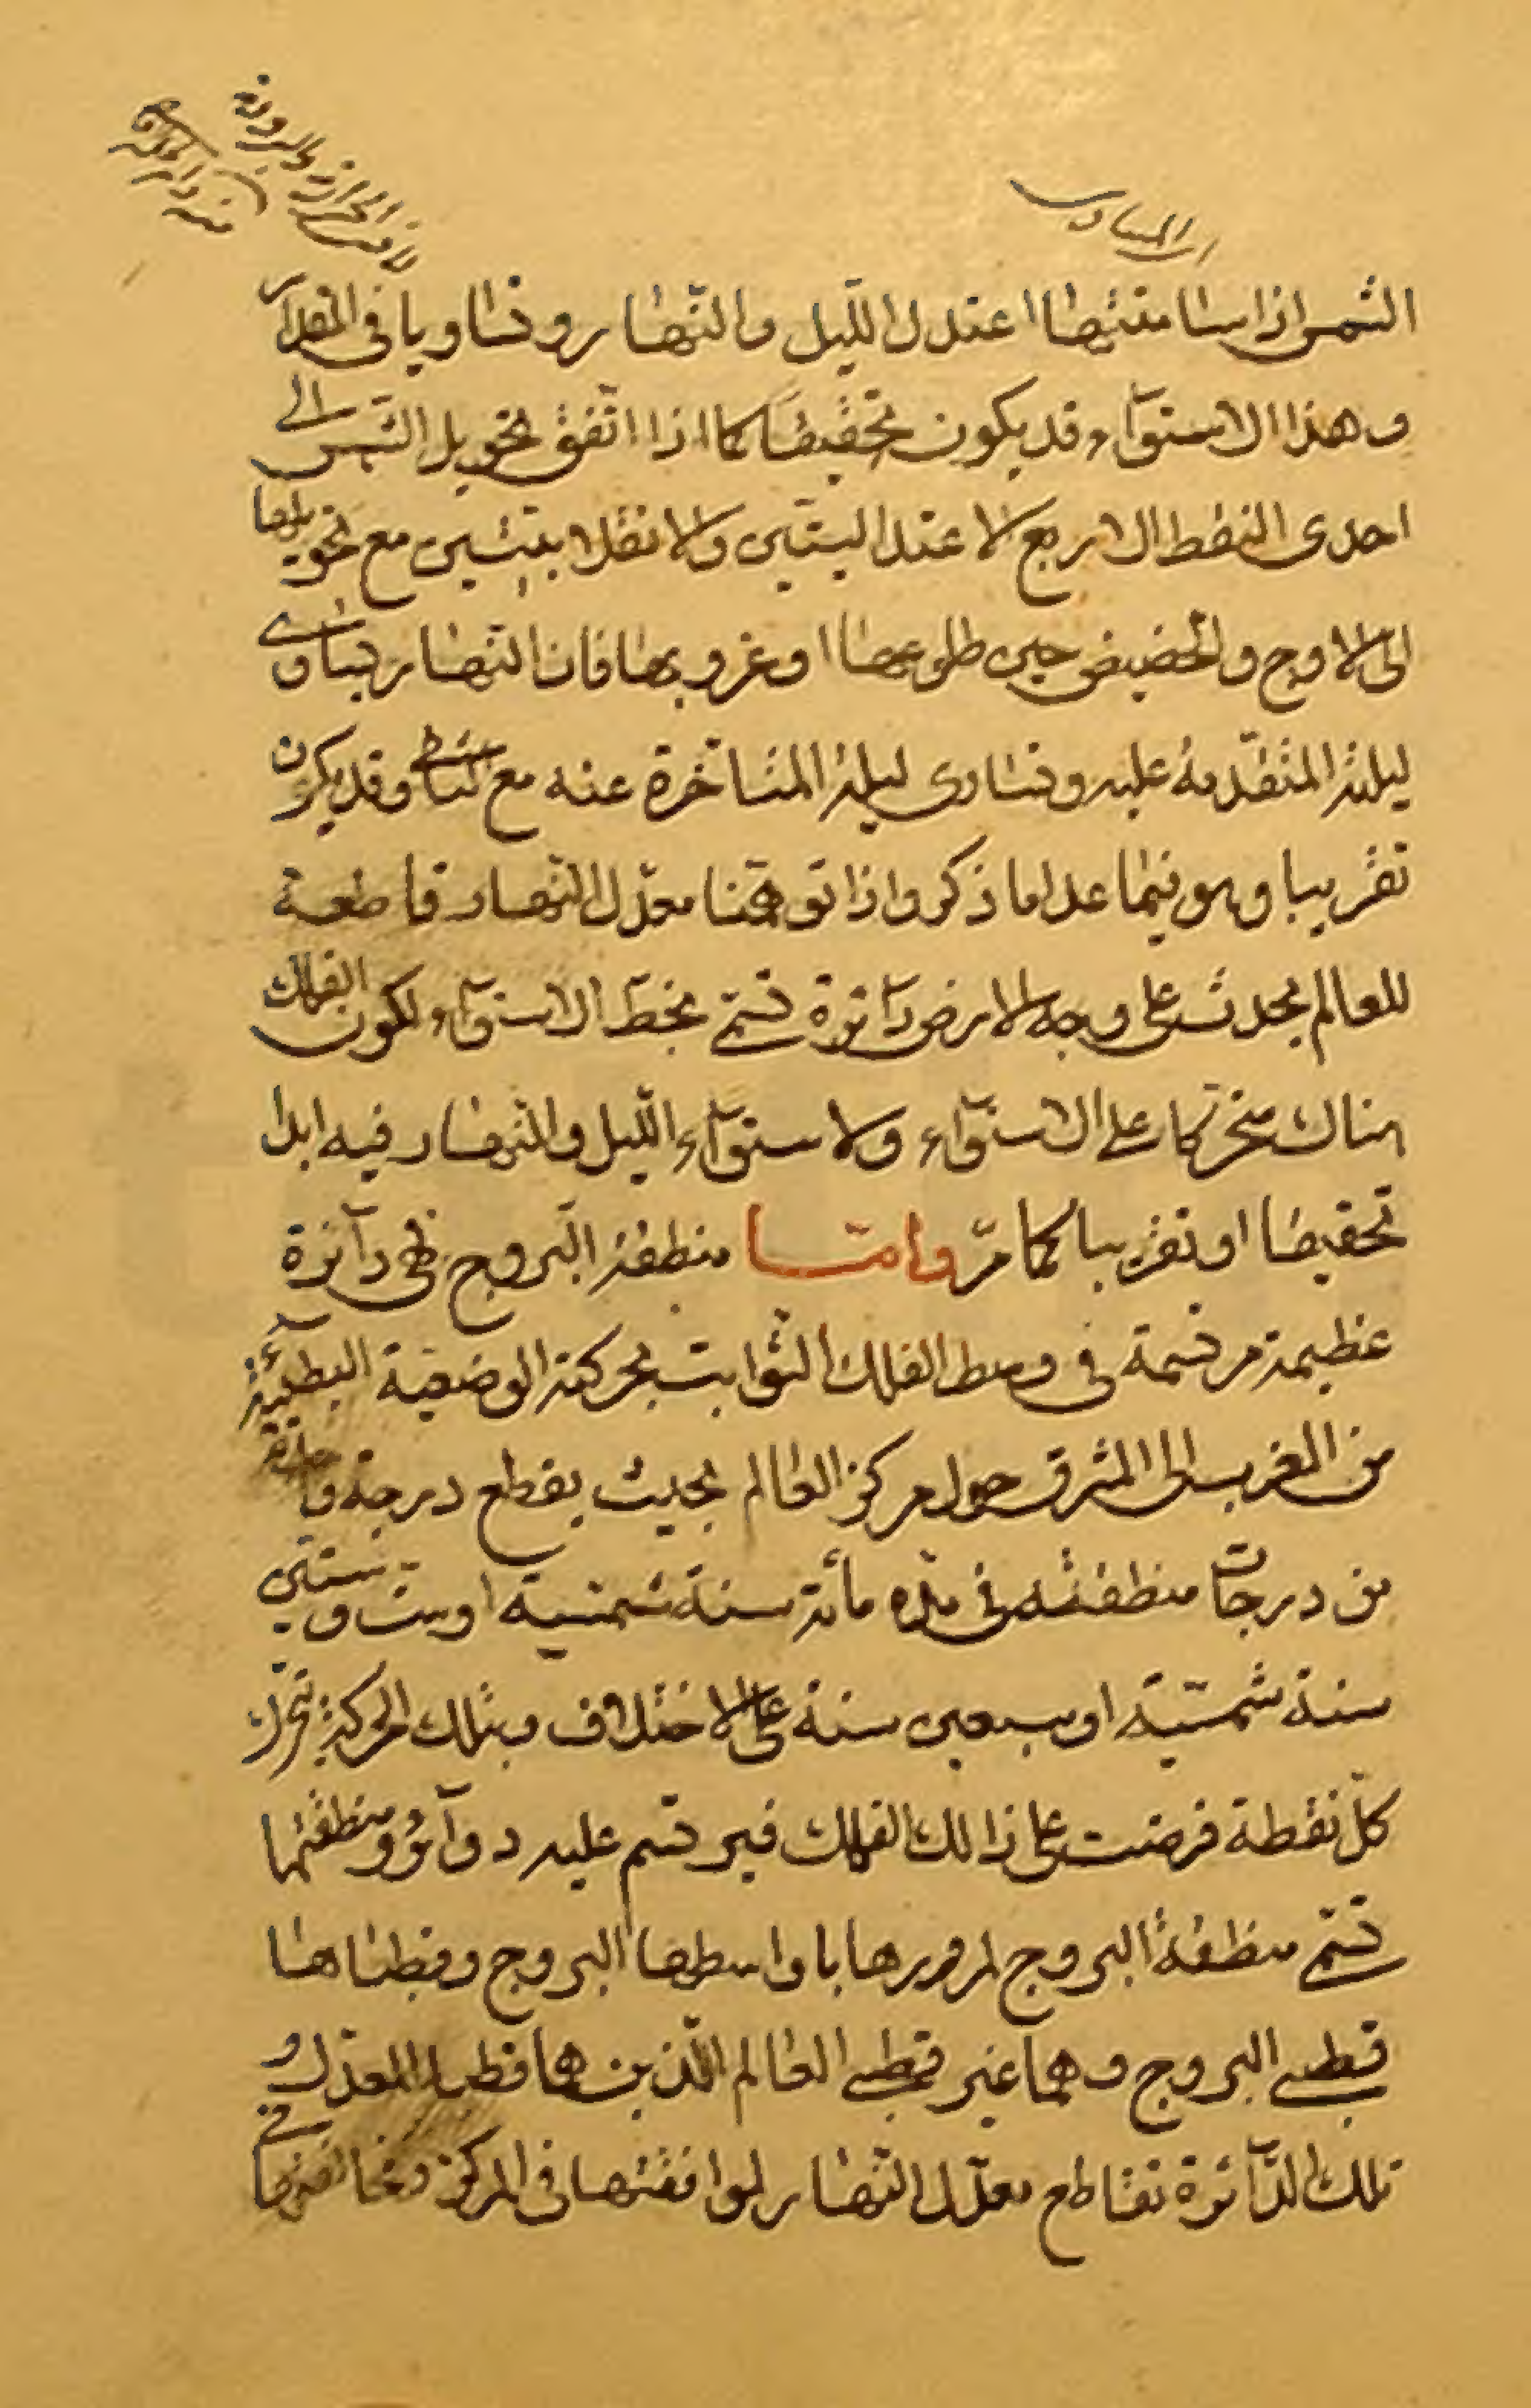 الشمس اذا سامتتها اعتدل اللّيل والنّهار وتساويا فى المقدار
وهذا الاستوآء قد يكون تحقيقيّا كما اذا اتّفق تحويل الشّمس الى
احدى النقط الاربع الاعتداليتين والانقلابيتين مع تحويلها
الى الاوج والحضيض حين طلوعها او غروبها فان النّهار يساوى
ليلته المتقدّمة عليه وتساوى ليلته المتأخرة عنه مع وقد يكون
تقريبا وهو فيما عدا ما ذكر واذا توهّمنا معدّل النّهار قاطعة
للعالم يحدث على وجه الارض دآئرة تسمّى بخطّ الاستوآء لكون الفلك
هناك متحركا على الاستوآء ولاستوآء اللّيل والنّهار فيه ابدا
تحقيقا او تقريبا كما مرّ وامّا منطقة البروج فهى دآئرة
عظيمة مرتسمة فى وسط الفلك الثّوابت بحركته الوضعيّة البطيئة
من المغرب الى المشرق حول مركز العالم بحيث يقطع درجة
من درجات منطقته فى مدّه مأئة سنة شمسيّة او ستّ وستّين
سنة شمسيّة او سبعين سنة على الاختلاف وبتلك الحركة تتحرّك
كلّ نقطة فرضت على ذالك الفلك فيرتسم عليه دوآئر ومنطقتها
تسمّى منطقة البروج لمرورها باواسطها البروج وقطباها
قطبى البروج وهما غير قطبى العالم اللّذين هما قطبا المعدّل و
تلك الدّآئرة تقاطع معدّل النّهار لموافقتها فى المركز ومخالفتها فى